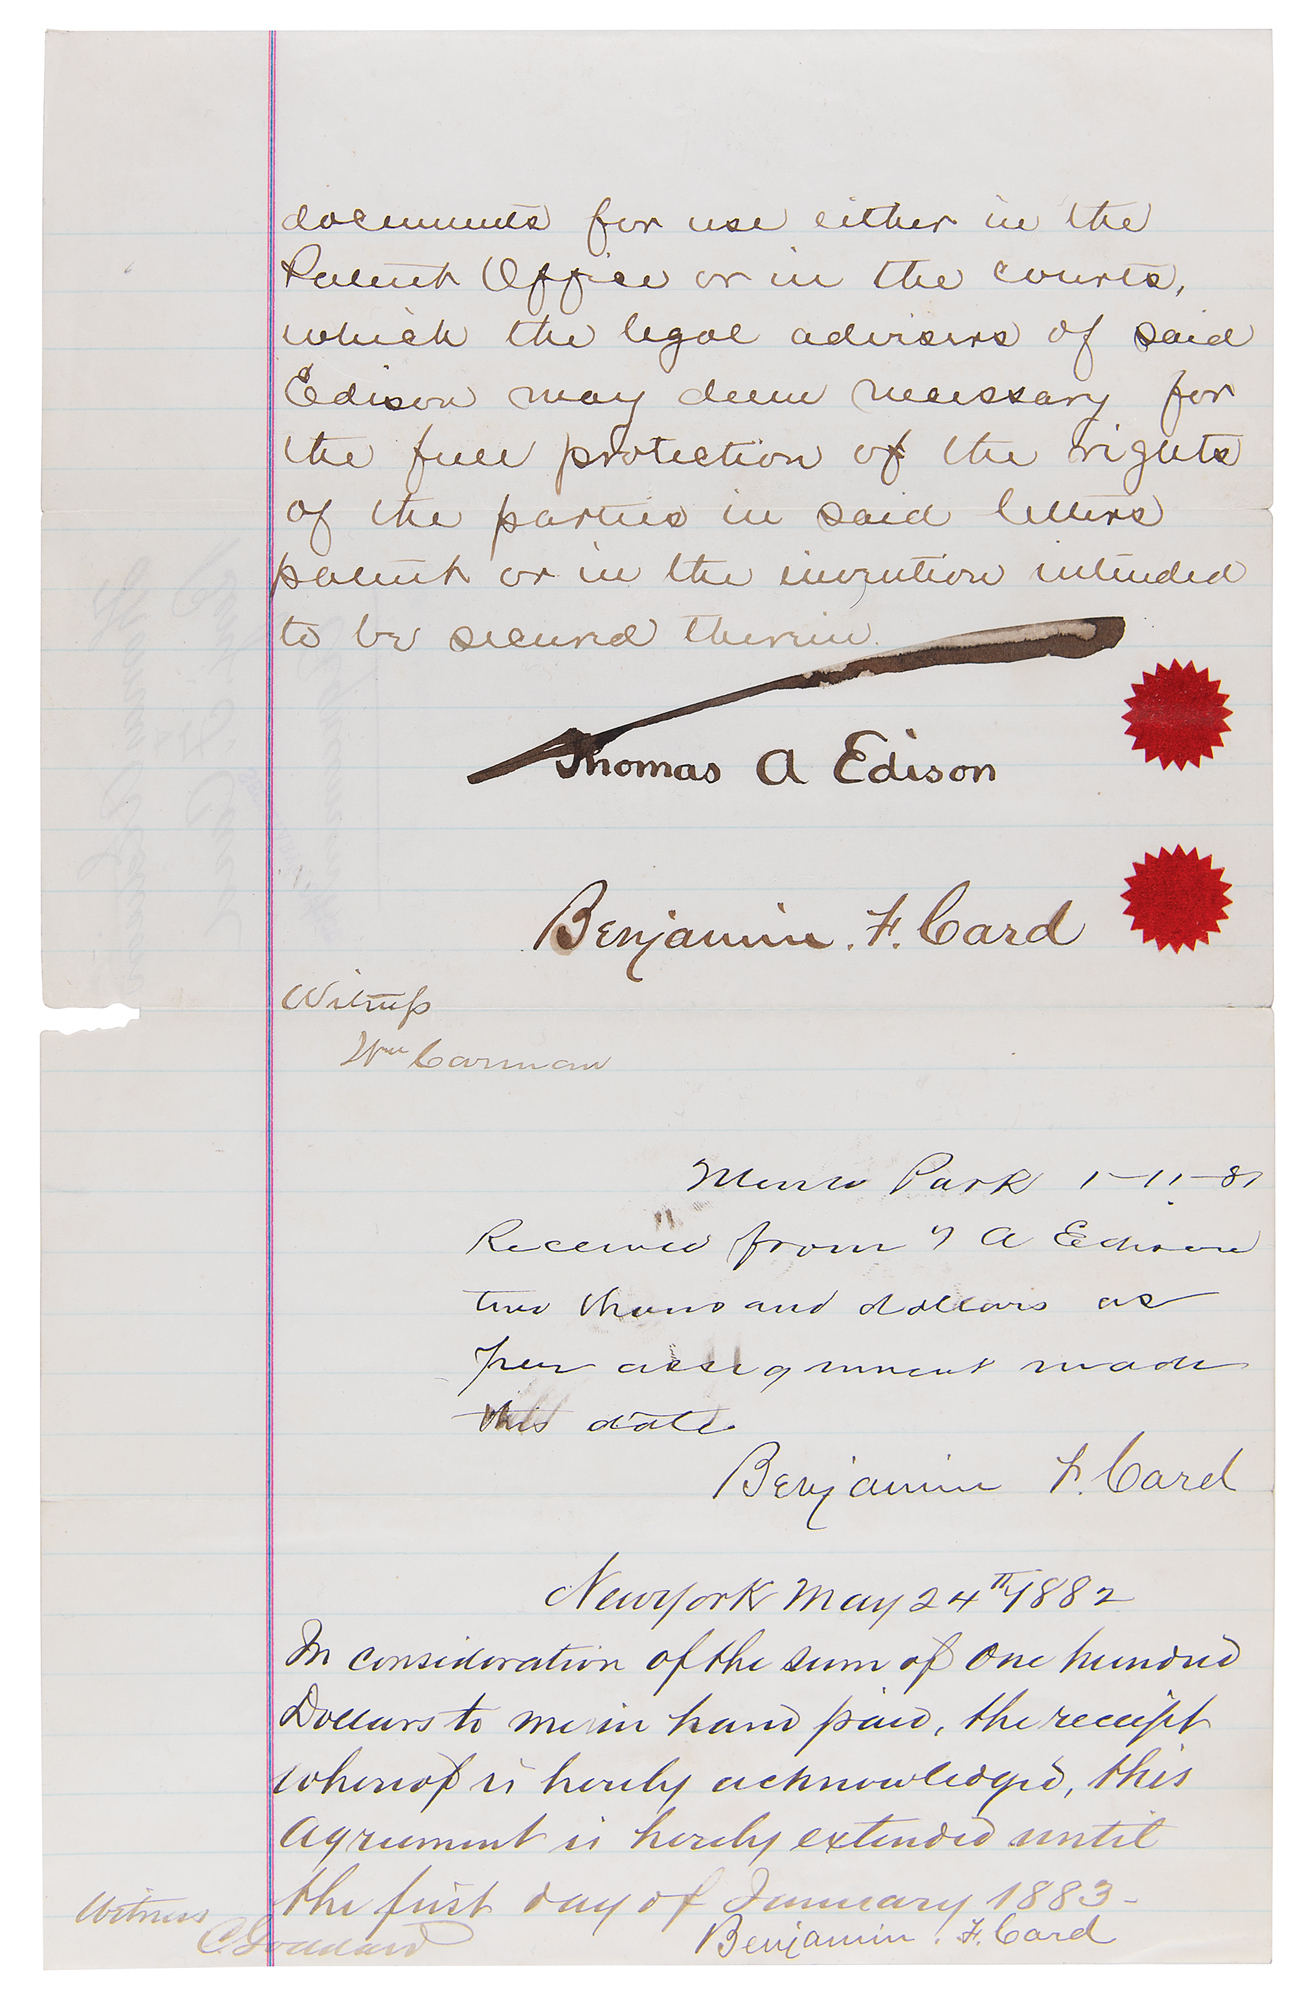 documents for use either in the
Patent Office or in the courts,
which the legal advisers of said
Edison may deem necessary for
the full protection of the rights
of the parties in said letters
patent or in the invention intended
to be secured therein.
Thomas A Edison
Benjamin. F. Card
Witness
Wm Carman
Menlo Park 1-11-81
Received from T A Edison
two thousand dollars as
per assignment made
this date
Benjamin F. Card
New York May 24th 1882
In consideration of the sum of One hundred
Dollars to me in hand paid, the receipt
whereof is hereby acknowledged, this
Agreement is hereby extended until
the first day of January 1883-
Witness
Benjamin. F. Card